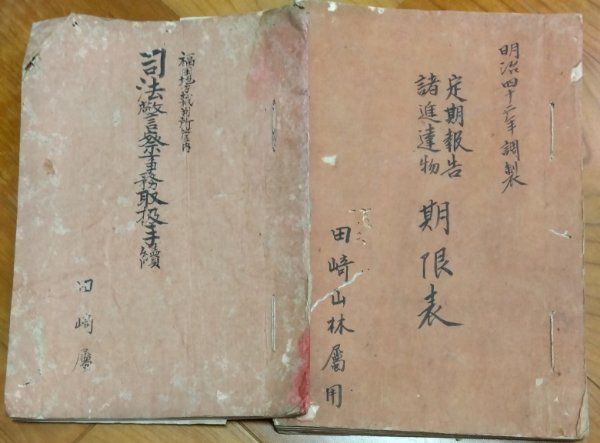 明治四十二年調製
定期報告
諸進達物
期限表
田崎山林屬用
福岡地方裁判所管内
司法警察事務取扱手續
田崎屬